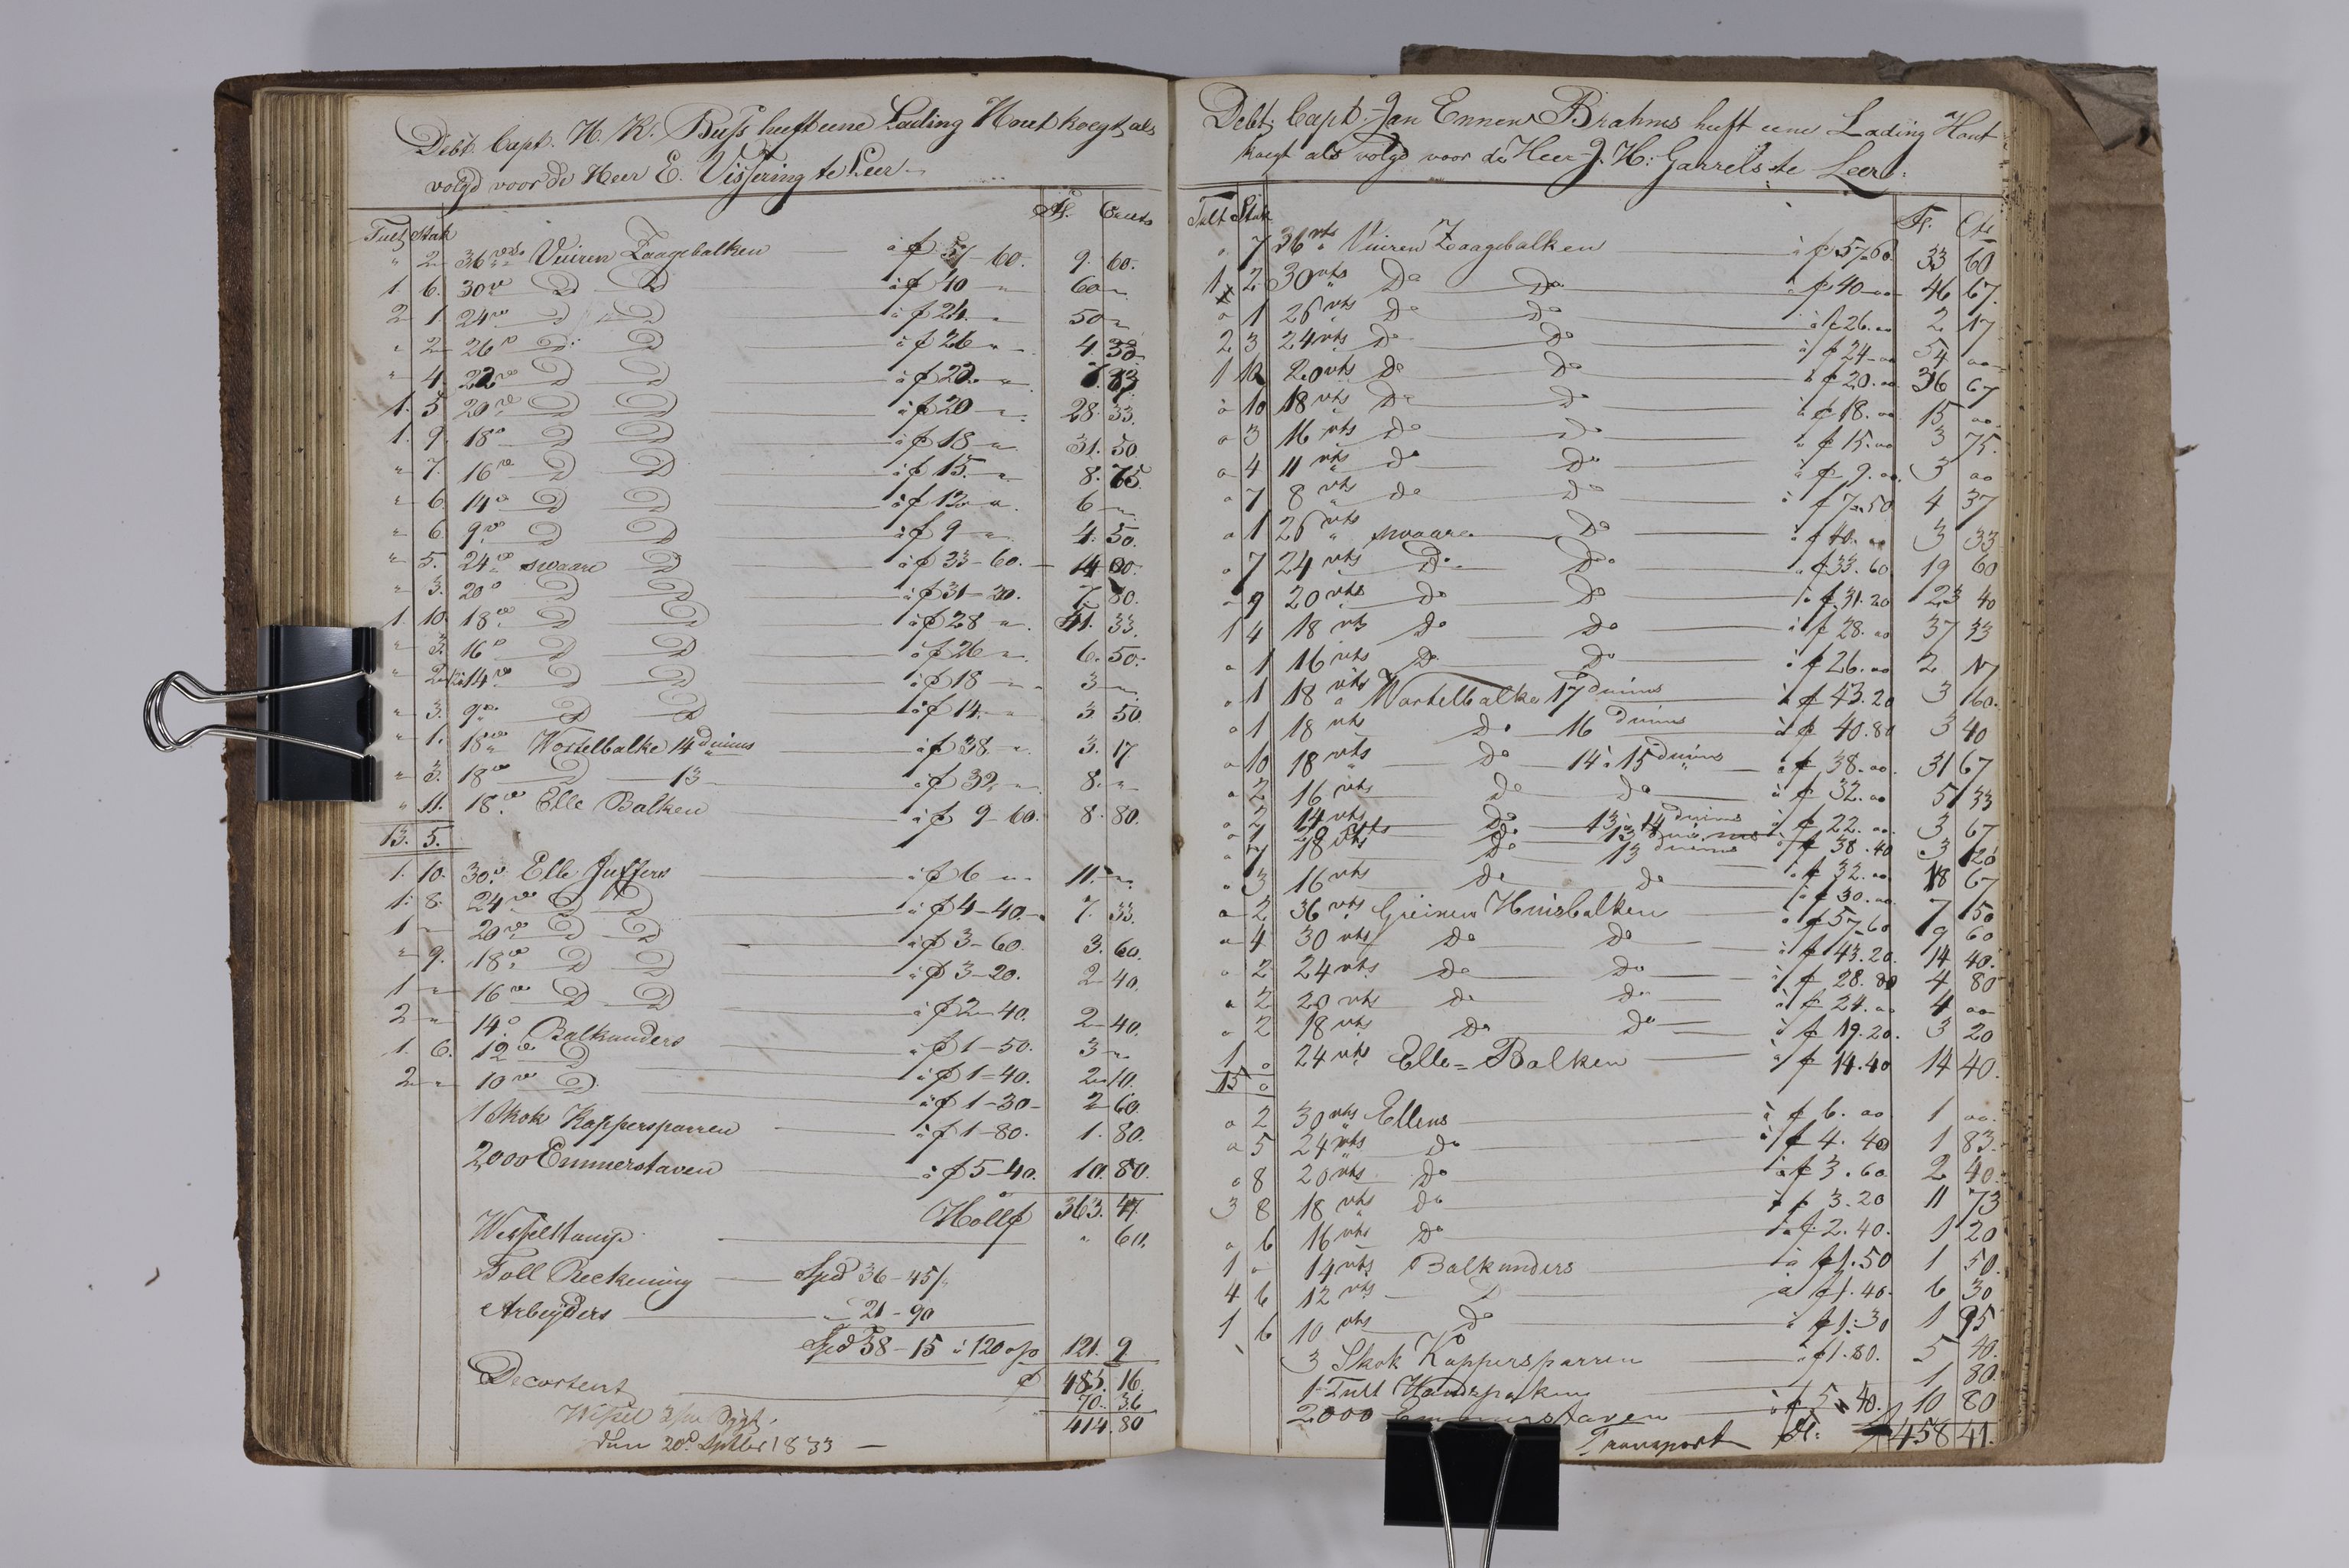 Debt. Capt. H. K. Buss heeft eene Lading Hout koegt als
volgd voor de Heer E. Vissering te Leer
Tult Stuk Fl. Cents
" 2 36 vts Vuiren Zaagebalken à f 57-60. 9. 60.
1 6. 30 v D D à f 40 " 60 "
2 1 24 v D D à f 24. " 50 "
" 2 26 v D D à f 26 " 4. 33
" 4. 22 v D D à f 22. "
1. 5 20 v D D à f 20 " 28. 33.
1. 9. 18 v D D à f 18 " 31. 50
" 7. 16 v D D à f 15. " 8. 75.
" 6. 14 v D D à f 12 " 6 "
" 6. 9 v D D à f 9 " 4. 50.
" 5. 24 v swaare D à f 33-60. 14 00.
" 3. 20 v D D à f 31-20. 7. 80.
1. 10. 18 v D D à f 28 " 51. 33.
" 3. 16 v D D à f 26 " 6. 50.
" 2 14 v D D à f 18 " 3 "
" 3. 9 v D D à f 14. " 3 50.
" 1. 18 v Wortelbalke 14 duims à f 38. " 3. 17.
" 3. 18 v D 13 à f 32 " 8. "
" 11. 18 v Elle Balken à f 9-60. 8. 80.
13. 5.
1. 10. 30 v Elle Juffers à f 6 " 11. "
1. 8. 24 v D D à f 4-40. 7. 33.
1 " 20 v D D à f 3-60. 3. 60.
" 9. 18 v D D à f 3-20. 2 40.
1 " 16 v D D à f 2-40. 2 40.
2 " 14 v Balkunders à f 1-50. 3 "
1. 6. 12 v D à f 1-40. 2 10.
2 " 10 v D à f 1-30 2 60.
1 Skok Kappersparren à f 1-80. 1. 80.
2000 Emmerstaven à f 5-40. 10. 80.
Holl f 363. 47.
Wesseltamp " 60.
Toll Reckening Spd 36-45/.
Arbeyders 21-90
Spd 58-15 à 120 121. 9
f 485. 16
Decortent 70. 36
Wissel
414. 80
den 20 Septber 1833
Debt. Capt. Jan Ennen Brahms heeft eene Lading Hout
koegt als volgd voor de Heer J. H. Garrels te Leer:
Tult Stuk Fl. Cts
" 7 36 vts Vuiren Zaagebalken à f 57.60. 33 60
1 2 30 vts Do Do à f 40 " 46 67.
" 1 26 vts Do Do à f 26. " 2 17
2 3 24 vts Do Do à f 24 " 54 "
1 10 20 vts Do Do à f 20. " 36 67
" 10 18 vts Do Do à f 18. " 15 "
" 3 16 vts Do Do à f 15. " 3 75.
" 4 11 vts Do Do à f 9. " 3 "
" 7 8 vts Do Do à f 7.50 4 37
" 1 26 vts swaare Do à f 40. " 3 33
" 7 24 vts Do Do à f 33.60 19 60
" 9 20 vts Do Do à f 31.20 23 40
1 4 18 vts Do Do à f 28. " 37 33
" 1 16 vts Do Do à f 26. " 2 17
" 1 18 vts Wortelbalke 17 duims à f 43.20 3 60.
" 1 18 vts Do 16 duims à f 40.80 3 40
" 10 18 vts Do 14 à 15 duims à f 38. " 31 67
" 2 16 vts Do Do à f 32. " 5 33
" 2 14 vts Do 13 à 14 duims à f 22. " 3 67
à f 38.40 3 20
" 7 18 vts Do 13 duims à f 32. " 18 67
" 3 16 vts Do Do à f 30. " 7 50
" 2 36 vts Greinen Huisbalken à f 57.60 9 60
" 4 30 vts Do Do à f 43.20. 14 40.
" 2 24 vts Do Do à f 28.80 4 80
" 2 20 vts Do Do à f 24. " 4 "
" 2 18 vts Do Do à f 19.20. 3 20
1 " 24 vts Elle-Balken à f 14.40 14 40.
15 "
" 2 30 vts Ellens à f 6. " 1 "
" 5 24 vts Do à f 4.40 1 83.
" 8 20 vts Do à f 3.60 2 40.
3 8 18 vts Do à f 3.20 11 73
" 6 16 vts Do à f 2.40. 1 20
1 " 14 vts Balkunders à f 1.50 1 50.
4 6 12 vts D à f 1.40. 6 30
1 6 10 vts Do à f 1.30 1 95
3 Skok Kappersparren à f 1.80. 5 40.
1 Tult Handspaken 1 80.
2000 Emmerstaven à f 5.40. 10 80
Transport Fl. 458 41.